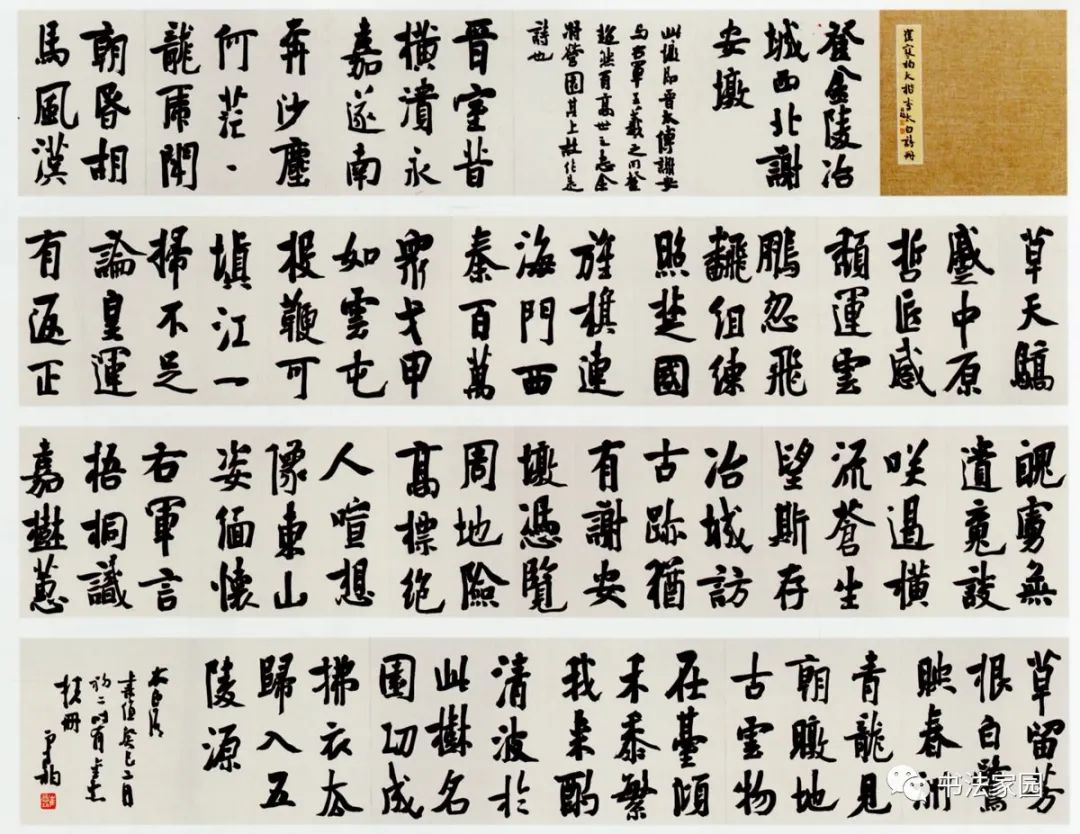 崔寒柏大楷李太白詩冊
登金陵冶
城西北謝
安墩
此墩即晉太傅謝安
与右軍王羲之同登
超然有高世之志余
將營園其上故作是
詩也
晉室昔
橫潰永
嘉遂南
奔沙塵
何茫〻
龍虎鬪
朝昏胡
馬風漢
草天驕
蹙中原
哲匠感
頹運雲
鵬忽飛
翻組練
照楚國
旌旗連
海門西
秦百萬
衆戈甲
如雲屯
投鞭可
填江一
掃不足
論皇運
有返正
醜虜無
遺魂談
咲遏橫
流蒼生
望斯存
冶城訪
古跡猶
有謝安
墩憑覽
周地險
高標絕
人喧想
像東山
姿緬懷
右軍言
梧桐識
嘉樹蕙
草留芳
根白鷺
映春洲
青龍見
朝暾地
古雲物
在臺傾
禾黍繁
我来酌
清波於
此樹名
園功成
拂衣去
歸入五
陵源
太白詩
歲值癸巳二月
初二時有
冊
寒柏
书法家园